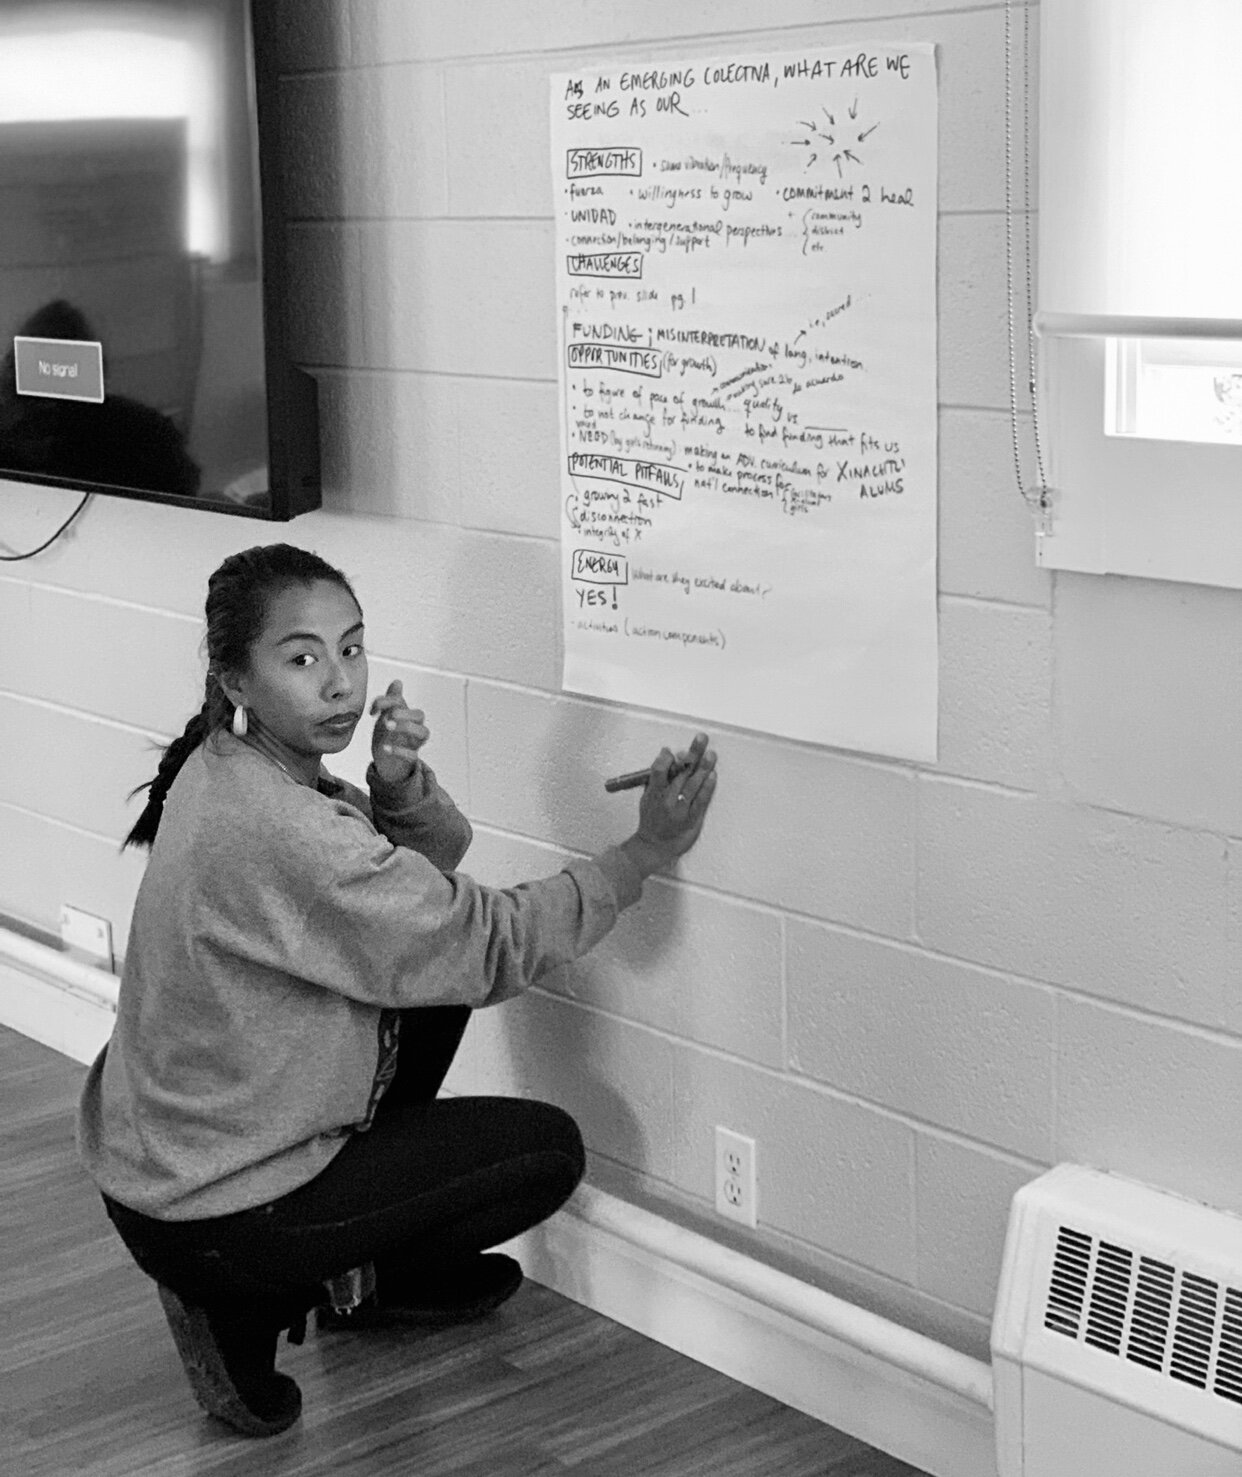 No signal
AS AN EMERGING COLECTIVA, WHAT ARE WE
SEEING AS OUR...
STRENGTHS • same vibration/frequency
• fuerza • willingness to grow • commitment 2 heal
• UNIDAD • intergenerational perspectives + { community
district
etc
• connection/belonging/support
CHALLENGES
refer to prev. slide pg. 1
FUNDING ; MISINTERPRETATION of lang, intention
i.e., sacred...
OPPORTUNITIES (for growth)
• communication
• making sure 2b de acuerdo
• to figure of pace of growth... quality vs ____
• to not change for funding to find funding that fits us
voiced
• NEED (by girls returning) making an ADV. curriculum for XINACHTLI
ALUMS
POTENTIAL PITFALLS • to make process for
nat'l connection
girls
• growing 2 fast
• disconnection
• integrity of X
ENERGY What are they excited about?
YES!
- activities (action components)